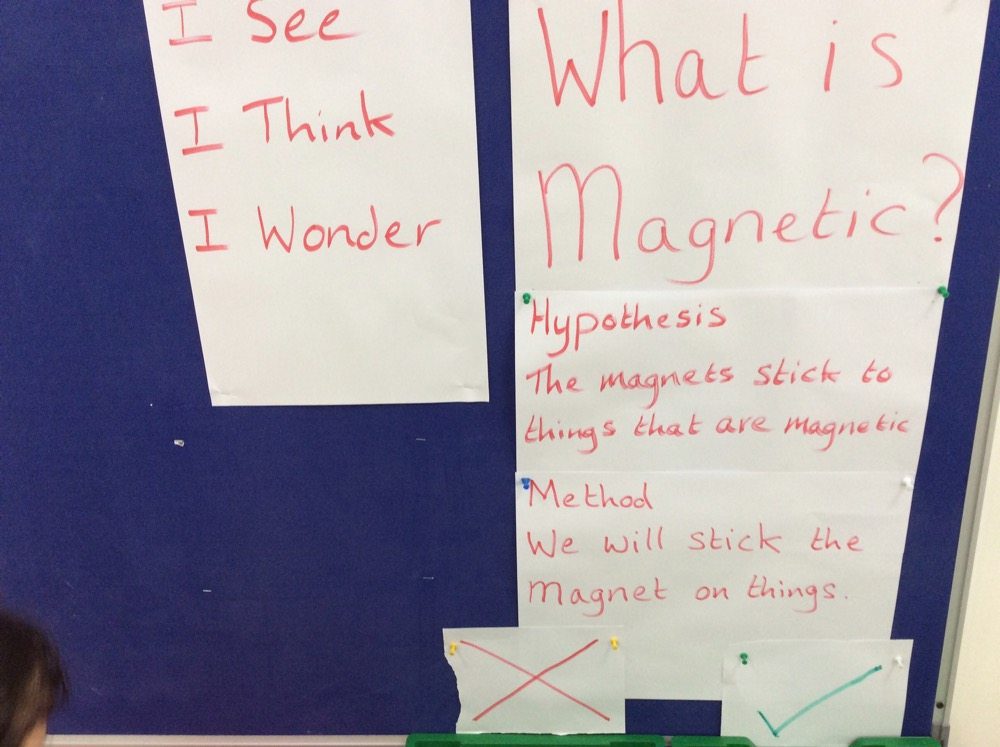 I See
I Think
I Wonder
What is
Magnetic?
Hypothesis
The magnets stick to
things that are magnetic
Method
We will stick the
Magnet on things.